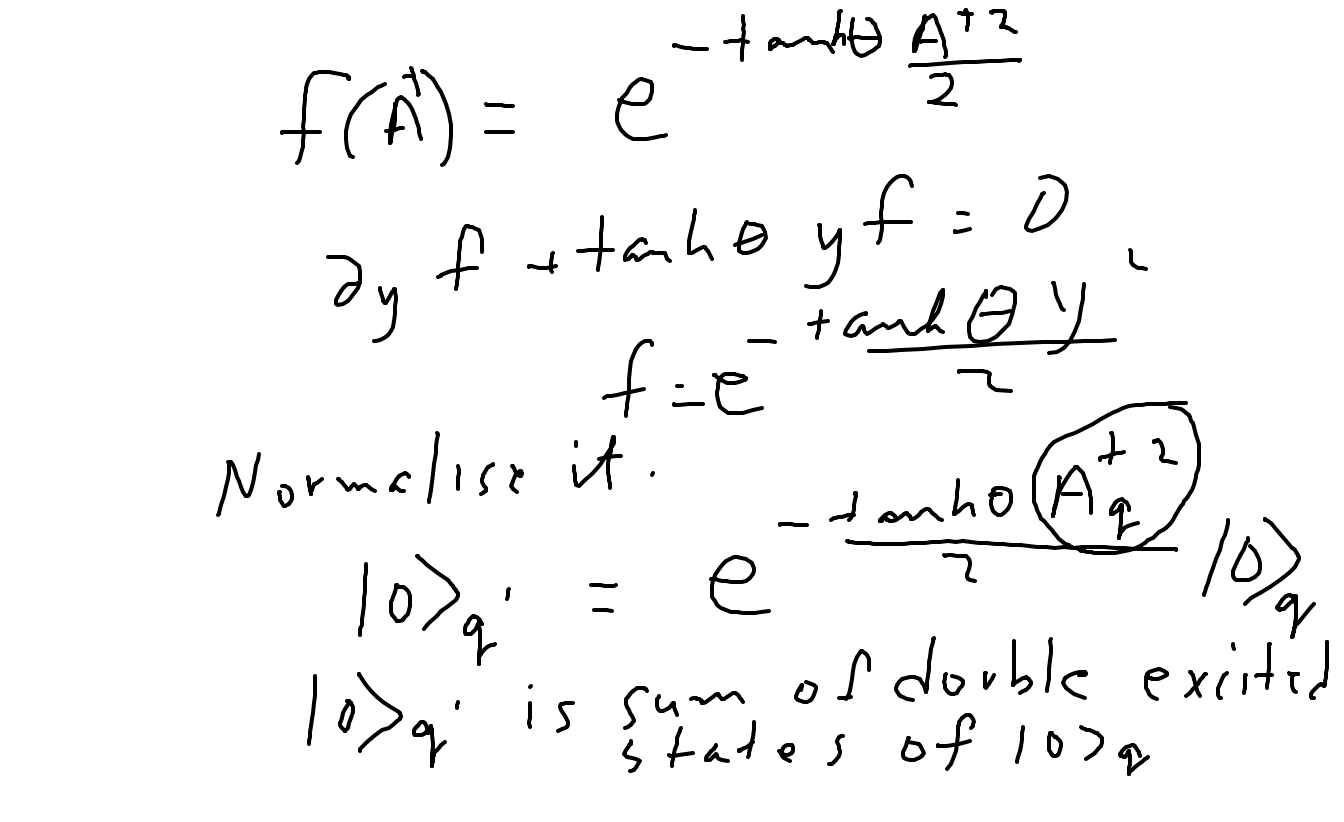 f(A⁺) = e^{-tanhθ A^{+2}/2}
∂_y f + tanhθ y f = 0
f = e^{-tanhθ y²/2}
Normalise it.
|0>_q' = e^{-tanhθ A_q^{+2}/2} |0>_q
|0>_q' is sum of double exited
states of |0>_q